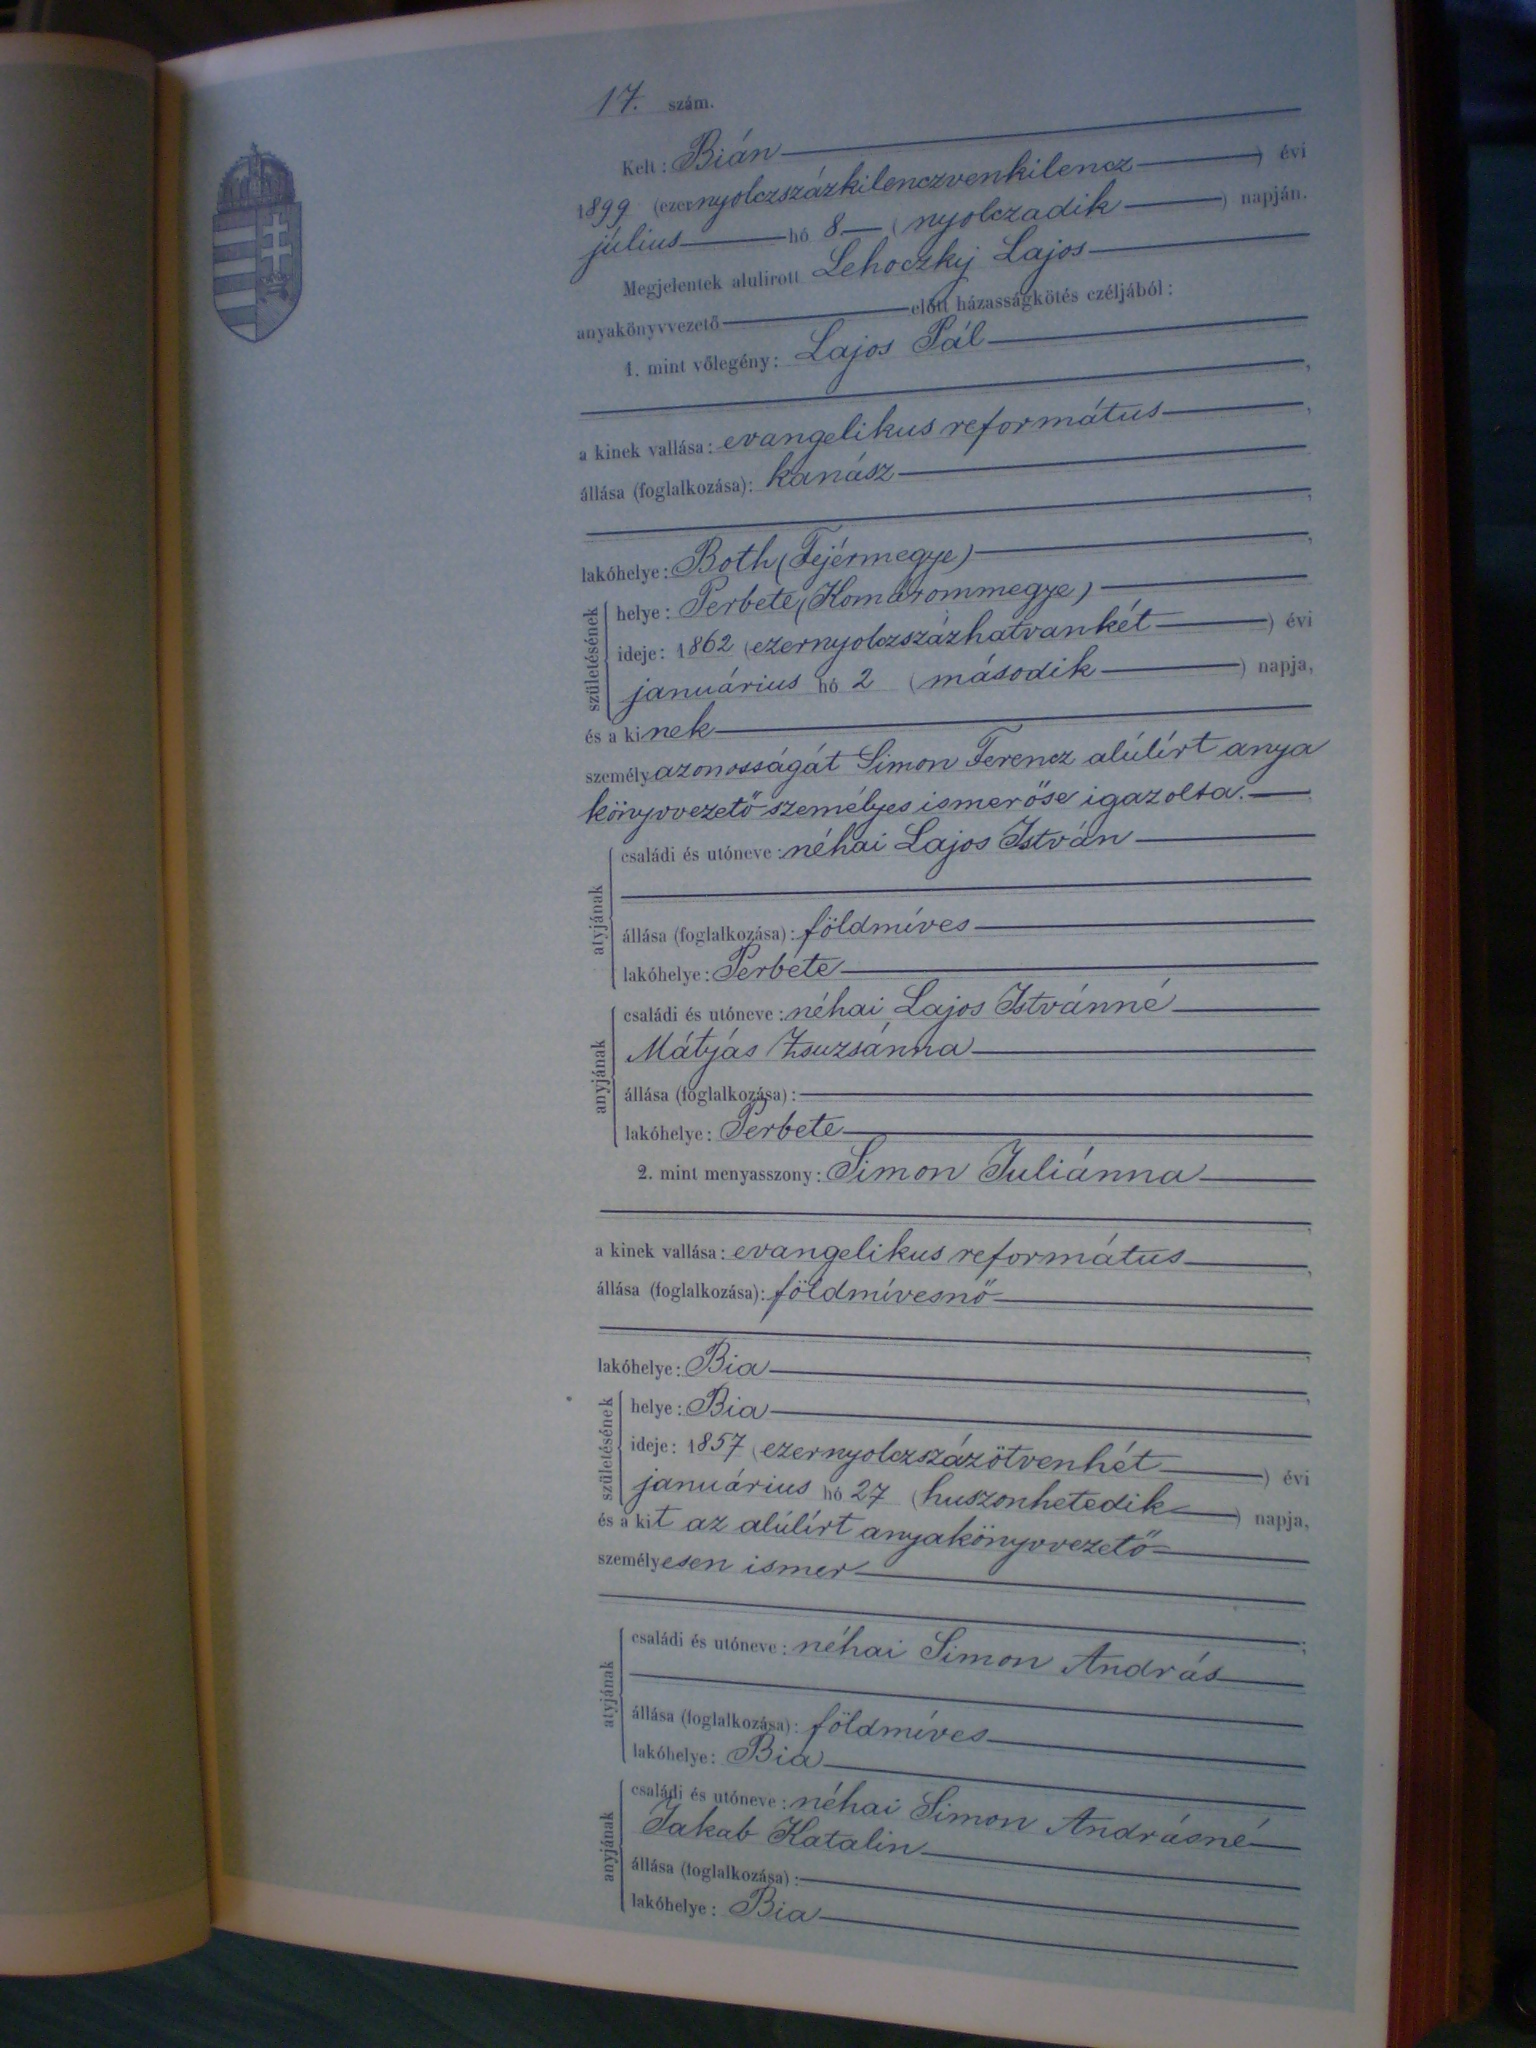 17. szám.
Kelt: Bián
1899 (ezernyolczszázkilenczvenkilencz) évi
július hó 8. (nyolczadik) napján.
Megjelentek alulirott Lehoczky Lajos
anyakönyvvezető előtt házasságkötés czéljából:
1. mint vőlegény: Lajos Pál
,
a kinek vallása: evangelikus református ,
állása (foglalkozása): kanász
,
lakóhelye: Both (Fejérmegye) ,
születésének
helye: Perbete (Komárommegye)
ideje: 1862 (ezernyolczszázhatvankét) évi
januárius hó 2 (második) napja,
és a kinek
személyazonosságát Simon Ferencz alúlírt anya
könyvvezető személyes ismerőse igazolta.
atyjának
családi és utóneve: néhai Lajos István
állása (foglalkozása): földmíves
lakóhelye: Perbete
anyjának
családi és utóneve: néhai Lajos Istvánné
Mátyás Zsuzsánna
állása (foglalkozása):
lakóhelye: Perbete
2. mint menyasszony: Simon Juliánna
,
a kinek vallása: evangelikus református ,
állása (foglalkozása): földmívesnő
,
lakóhelye: Bia ,
születésének
helye: Bia
ideje: 1857 (ezernyolczszázötvenhét) évi
januárius hó 27 (huszonhetedik) napja,
és a kit az alúlírt anyakönyvvezető
személyesen ismer
;
atyjának
családi és utóneve: néhai Simon András
állása (foglalkozása): földmíves
lakóhelye: Bia
anyjának
családi és utóneve: néhai Simon Andrásné
Jakab Katalin
állása (foglalkozása):
lakóhelye: Bia